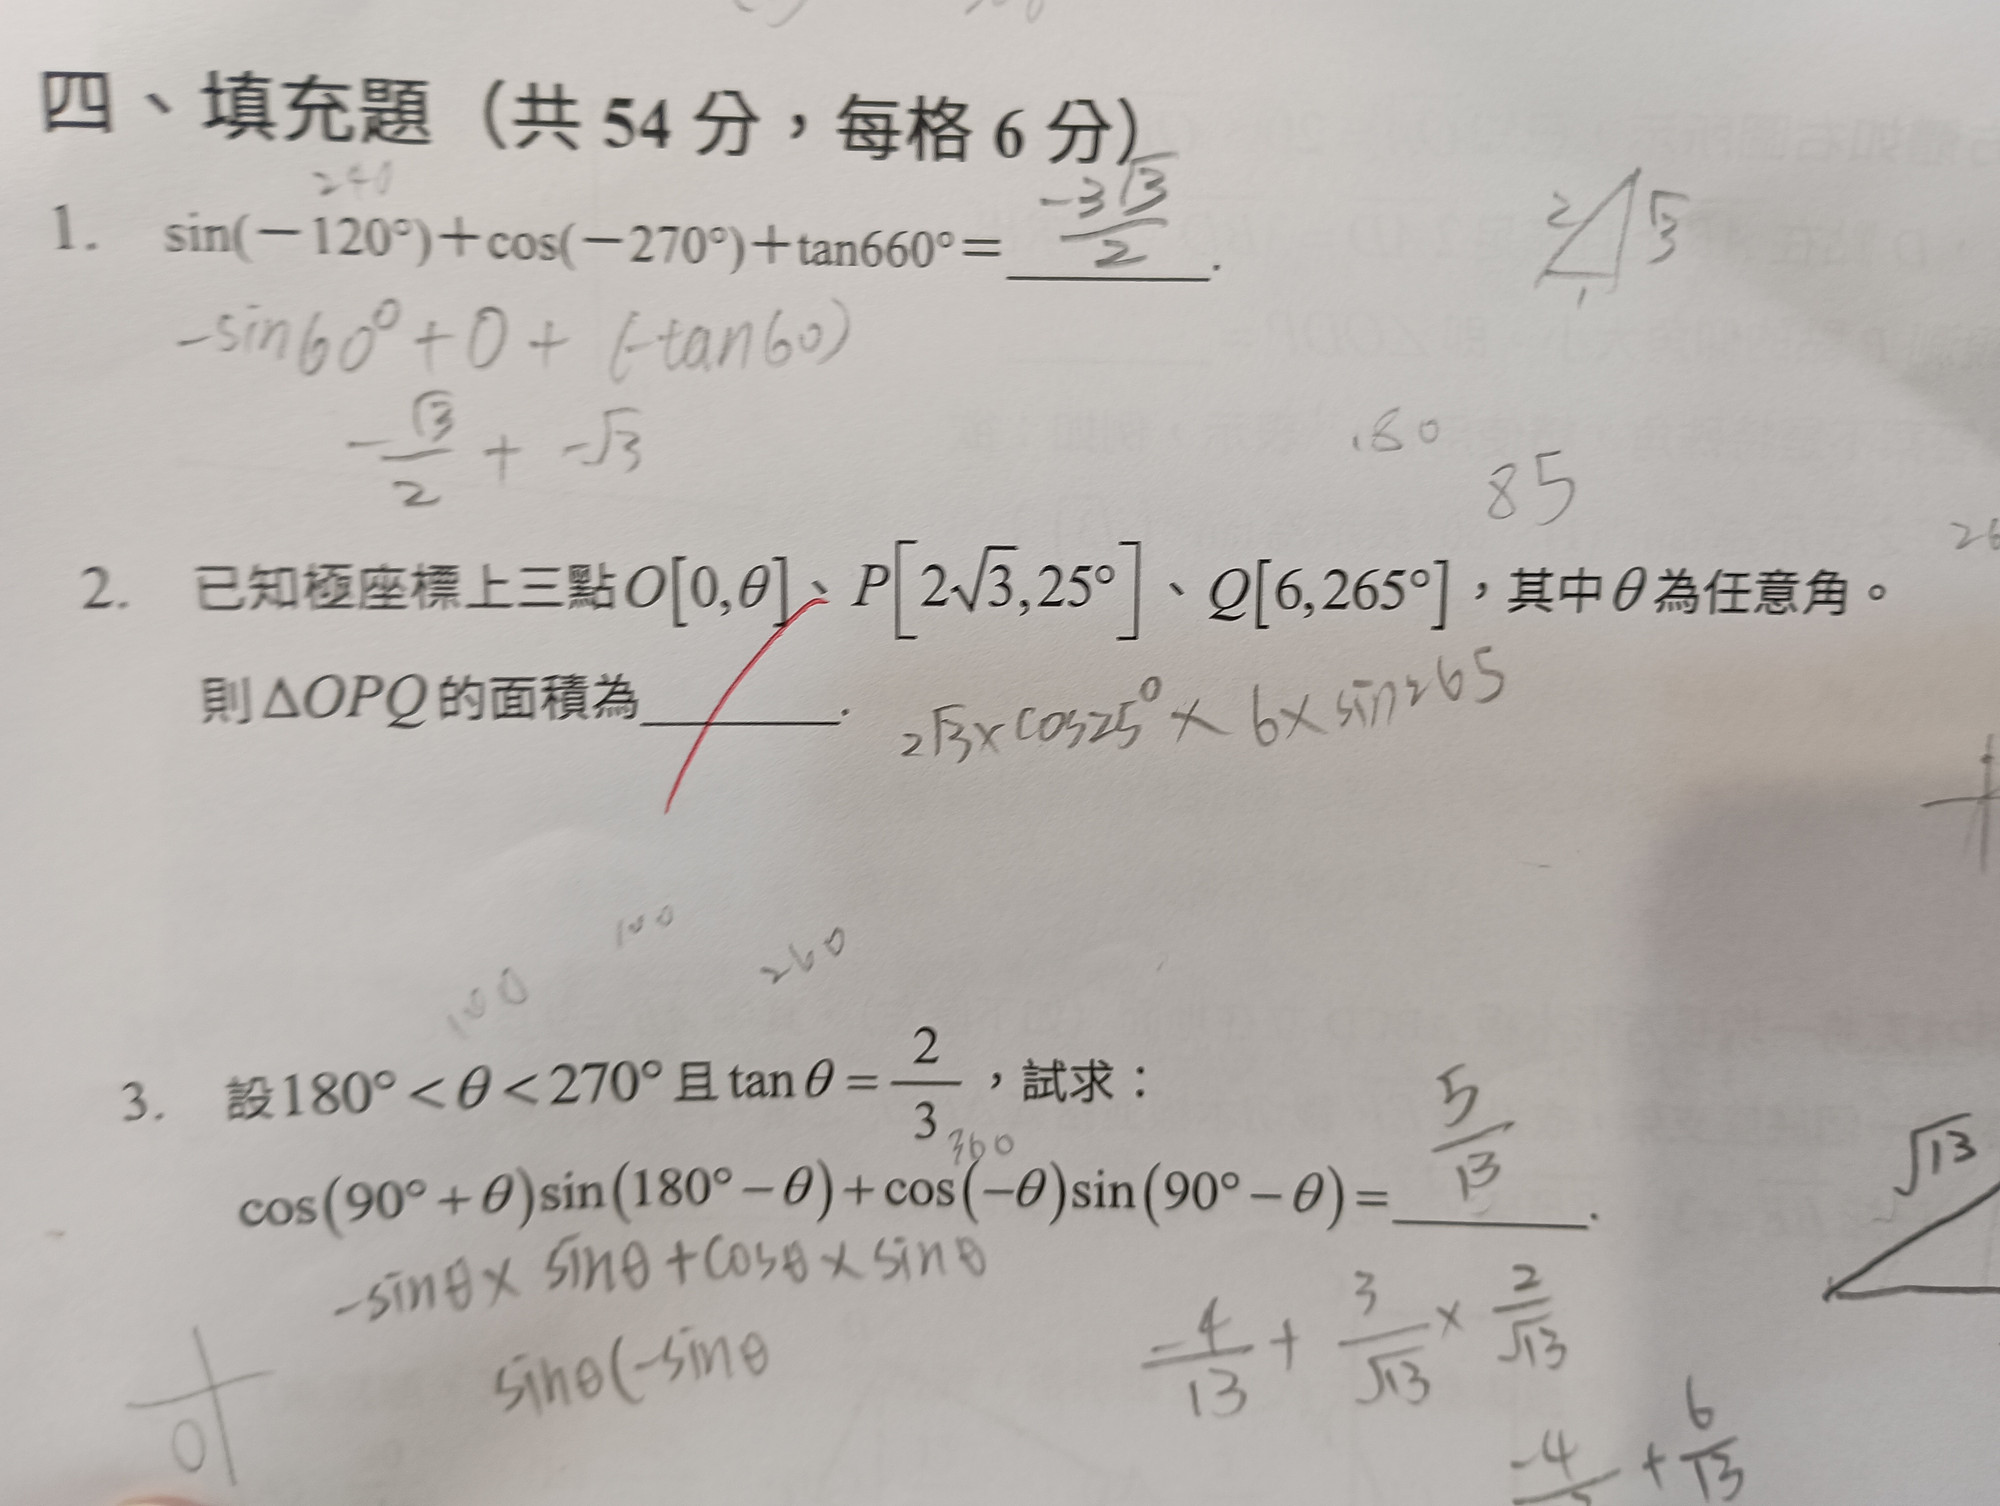 四、填充題（共 54 分，每格 6 分）
240
1. sin(−120°)+cos(−270°)+tan660°= -3√3/2 .
2 √3 1
-sin60°+0+(-tan60)
-√3/2 + -√3
180
85
26
2. 已知極座標上三點O[0,θ]、P[2√3,25°]、Q[6,265°]，其中θ為任意角。
則△OPQ的面積為________.
2√3×cos25°×6×sin265
100
260
100
3. 設180°<θ<270°且tanθ=2/3，試求：
360
cos(90°+θ)sin(180°−θ)+cos(−θ)sin(90°−θ)= 5/13 .
√13
-sinθ× sinθ+cosθ×sinθ
sinθ(-sinθ
-4/13 + 3/√13 × 2/√13
-4 + 6/13